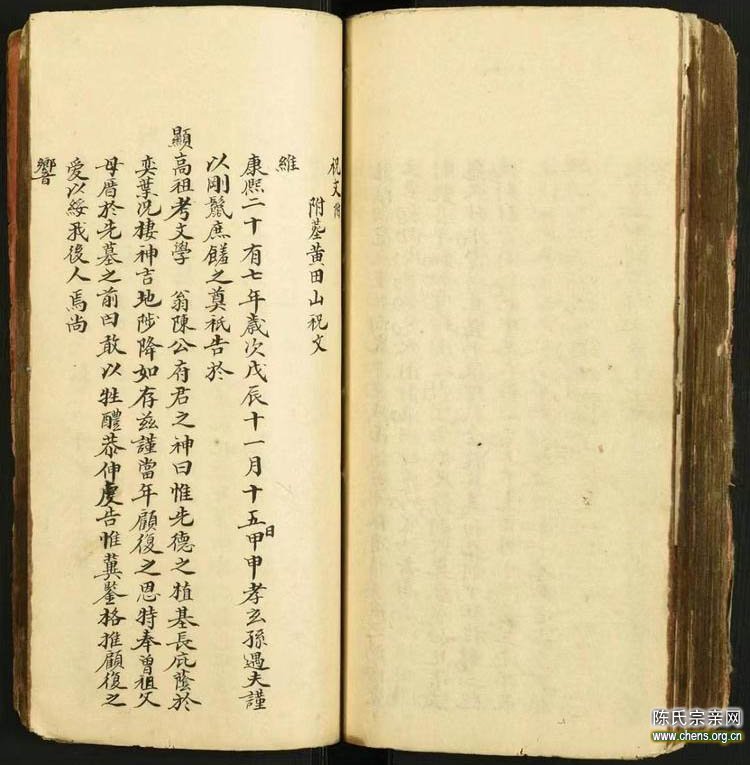 祝文附
附塟黃田山祝文
維
康熙二十有七年歲次戊辰十一月十五日甲申孝玄孫遇夫謹
以剛鬣庶饈之奠祇告於
顯高祖考文學 翁陳公府君之神曰惟先德之植基長庇蔭於
奕葉況棲神吉地陟降如存茲謹當年顧復之思特奉曾祖父
母厝於先墓之前曰敢以牲醴恭伸虔告惟冀鑒格推顧復之
愛以綏我後人焉尚
響
陈氏宗亲网
www.chens.org.cn